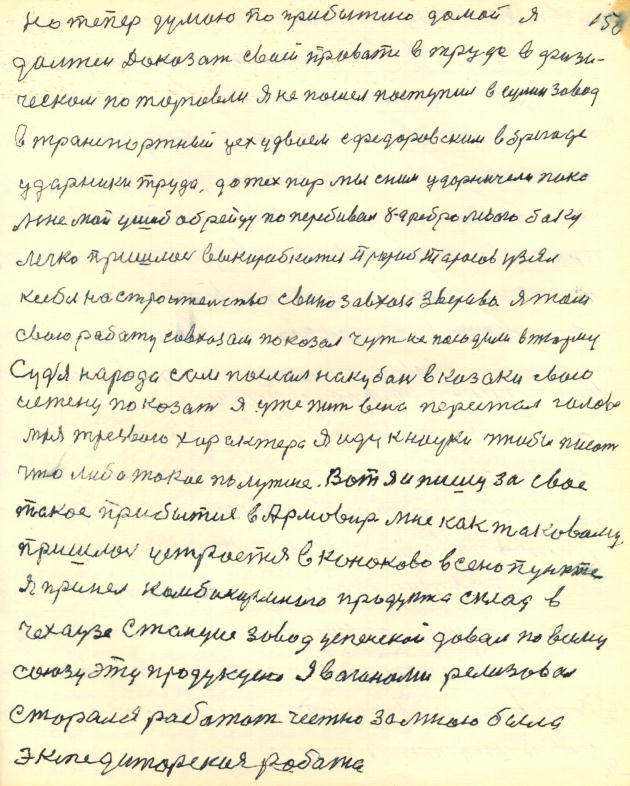 но тепер думаю по прибытию домой я 150
должен доказат свой провати в труде в физи-
ческом по торговли я не пошел поступил в сулин завод
в транспортный цех удвоем сфедоровским в бригаде
ударники труда, до тех пор мы сним ударничели пока
мне мой ушиб обрейду поперебивал 8 ребро левого баку
легко пришлос выкарабкатся прораб Тарасов узял
к себи на строителство свино завхоза Зверива я там
свою работу совхозам показал чут не посадили в тюрму
Судя народа сам послал на кубан в козаки свою
истену показат я уже пит вена перестал голова
моя трезвого характера я иду к науки чтобы писат
что либо такое полутше. Вот я и пишу за свое
такое прибытия в Армовир мне как таковаму,
пришлос устроется в коноково в сено пункте
я принел комбикормного продукта склад в
чехаузе станцие завод успенской довал по всему
союзу эту продукцию я вагонами релизовал
старался работат честно за мною была
экпедиторския работа